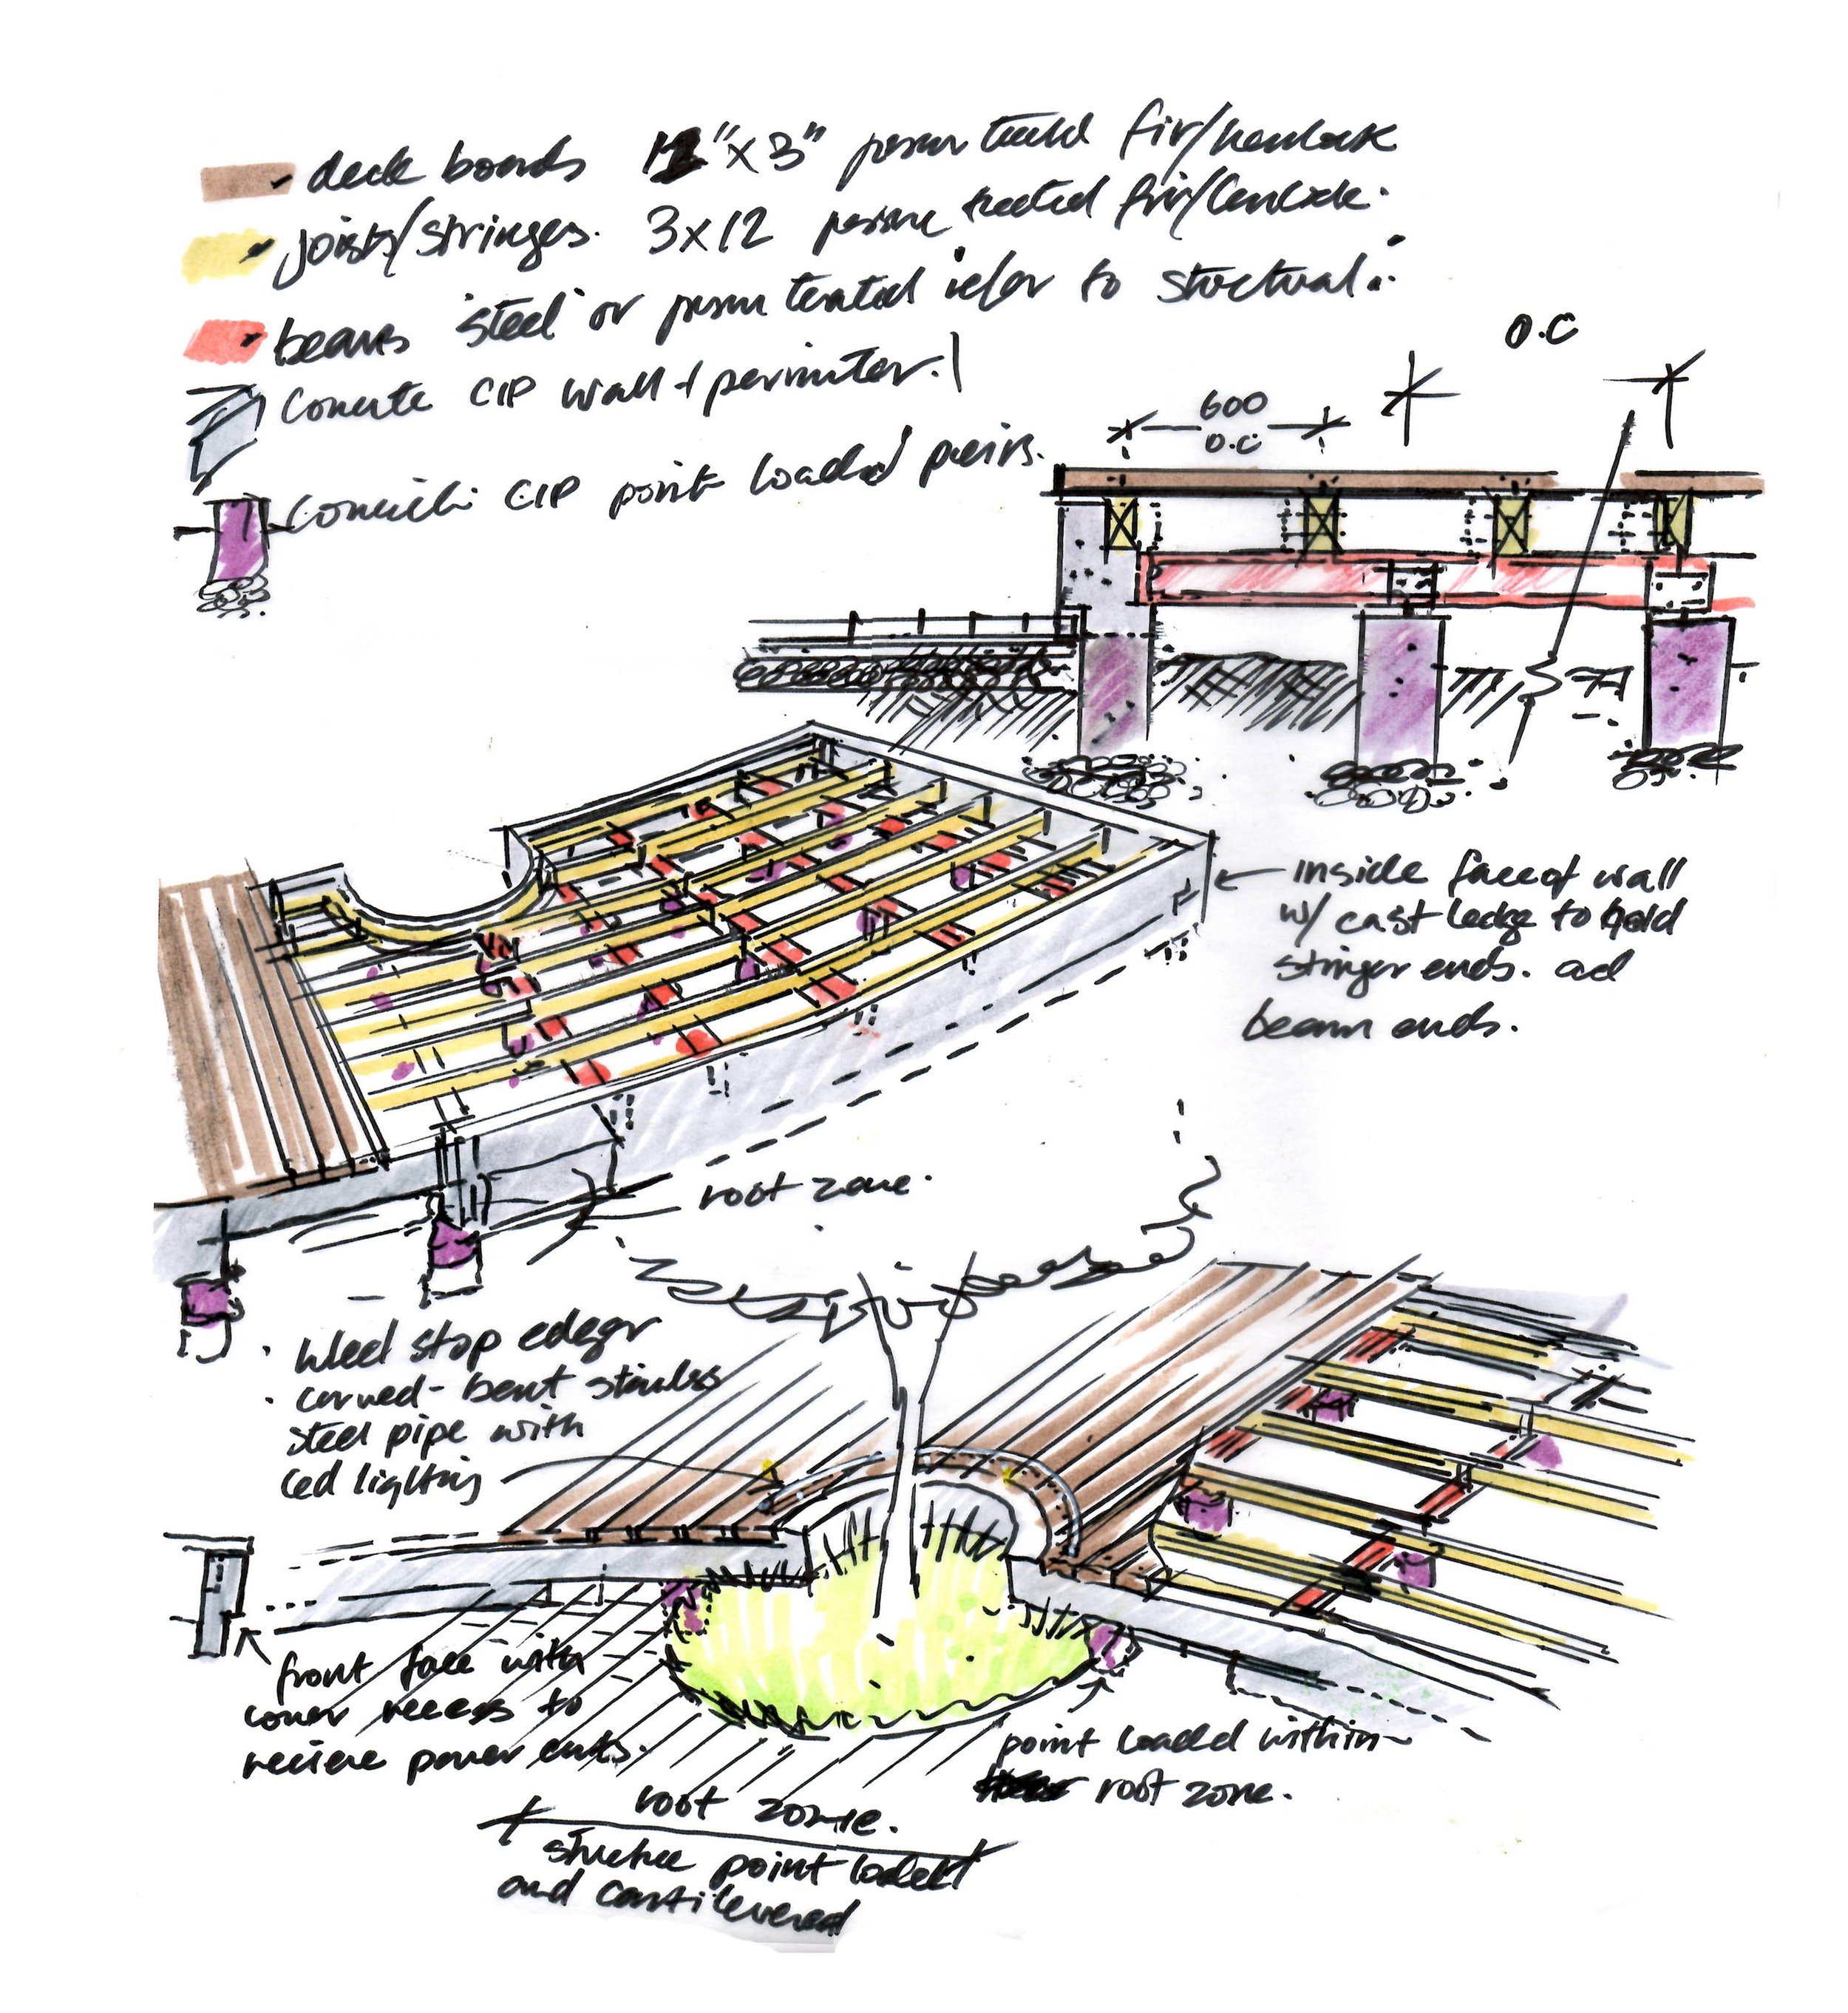 deck boards 12" x 3" treated fir/hemlock
joists/stringes. 3x12 treated fir/
beams steel or to structural
Concrete CIP wall + perimeter.
Concrete CIP point loaded
O.C
600
O.C
inside face of wall
w/ cast ledge to hold
stringer ends. ad
beam ends.
root zone.
• wheel stop edger
• curved - bent stainless
steel pipe with
led lighting
front face with
cover recess to
recieve power outs.
point loadd within
root zone.
root zone.
point loaded
and cantilevered